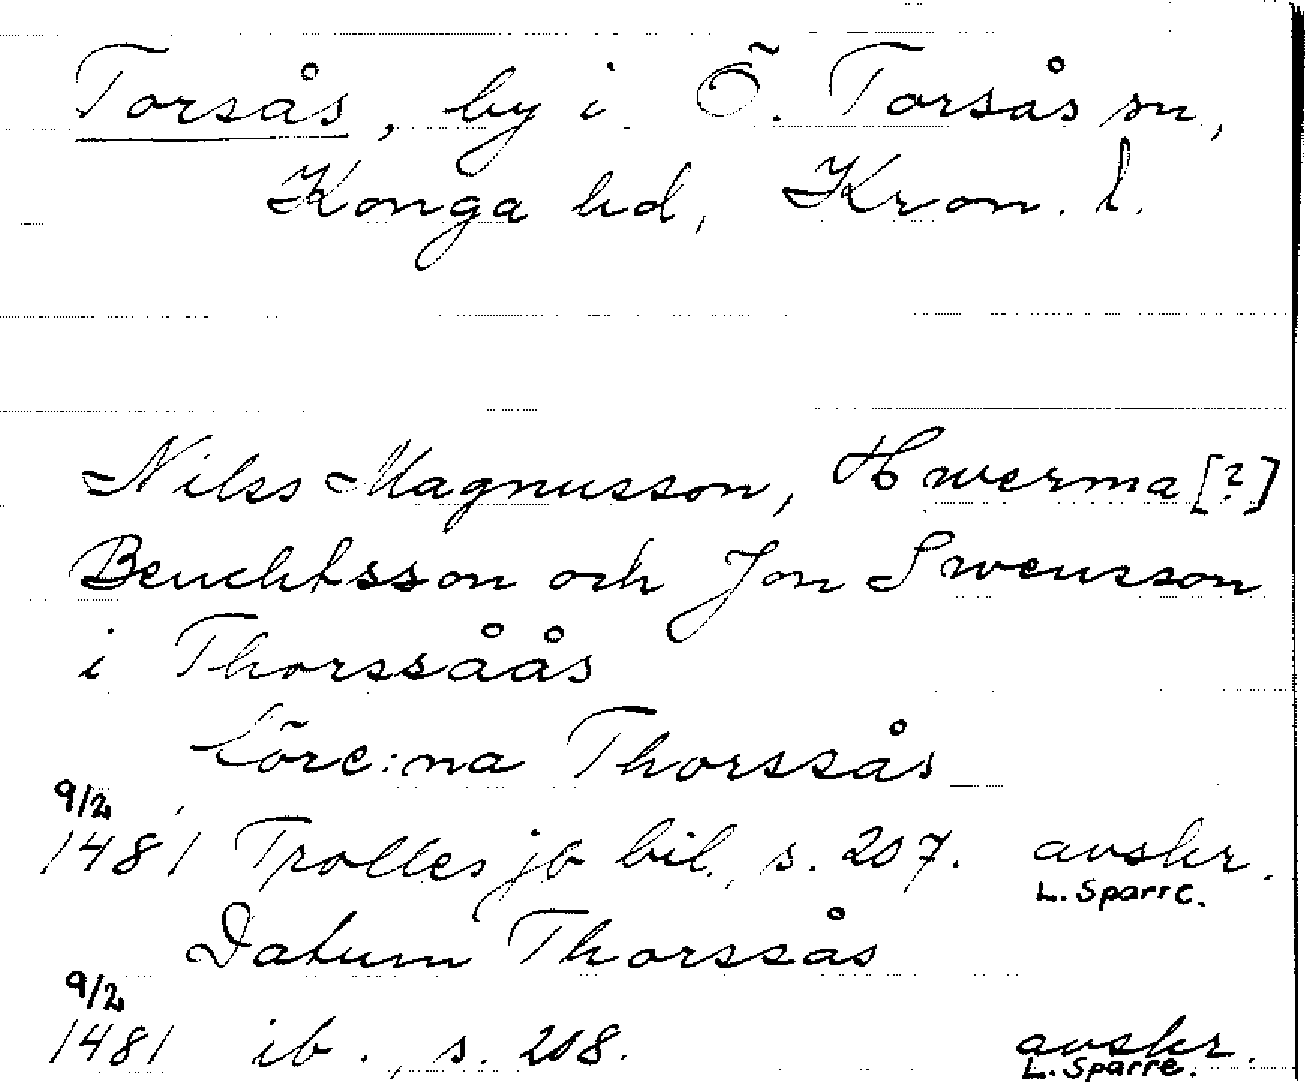 Torsås, by i Ö. Torsås sn,
Konga hd, Kron. l.
Nilss Magnusson, Hwerma [?]
Benchtsson och Jon Swensson
i Thorssåås
före:na Thorssås
9/2
1481 Trolles jb bil., s. 207. avskr.
L. Sparre.
Datum Thorssås
9/2
1481 ib., s. 208. avskr.
L. Sparre.